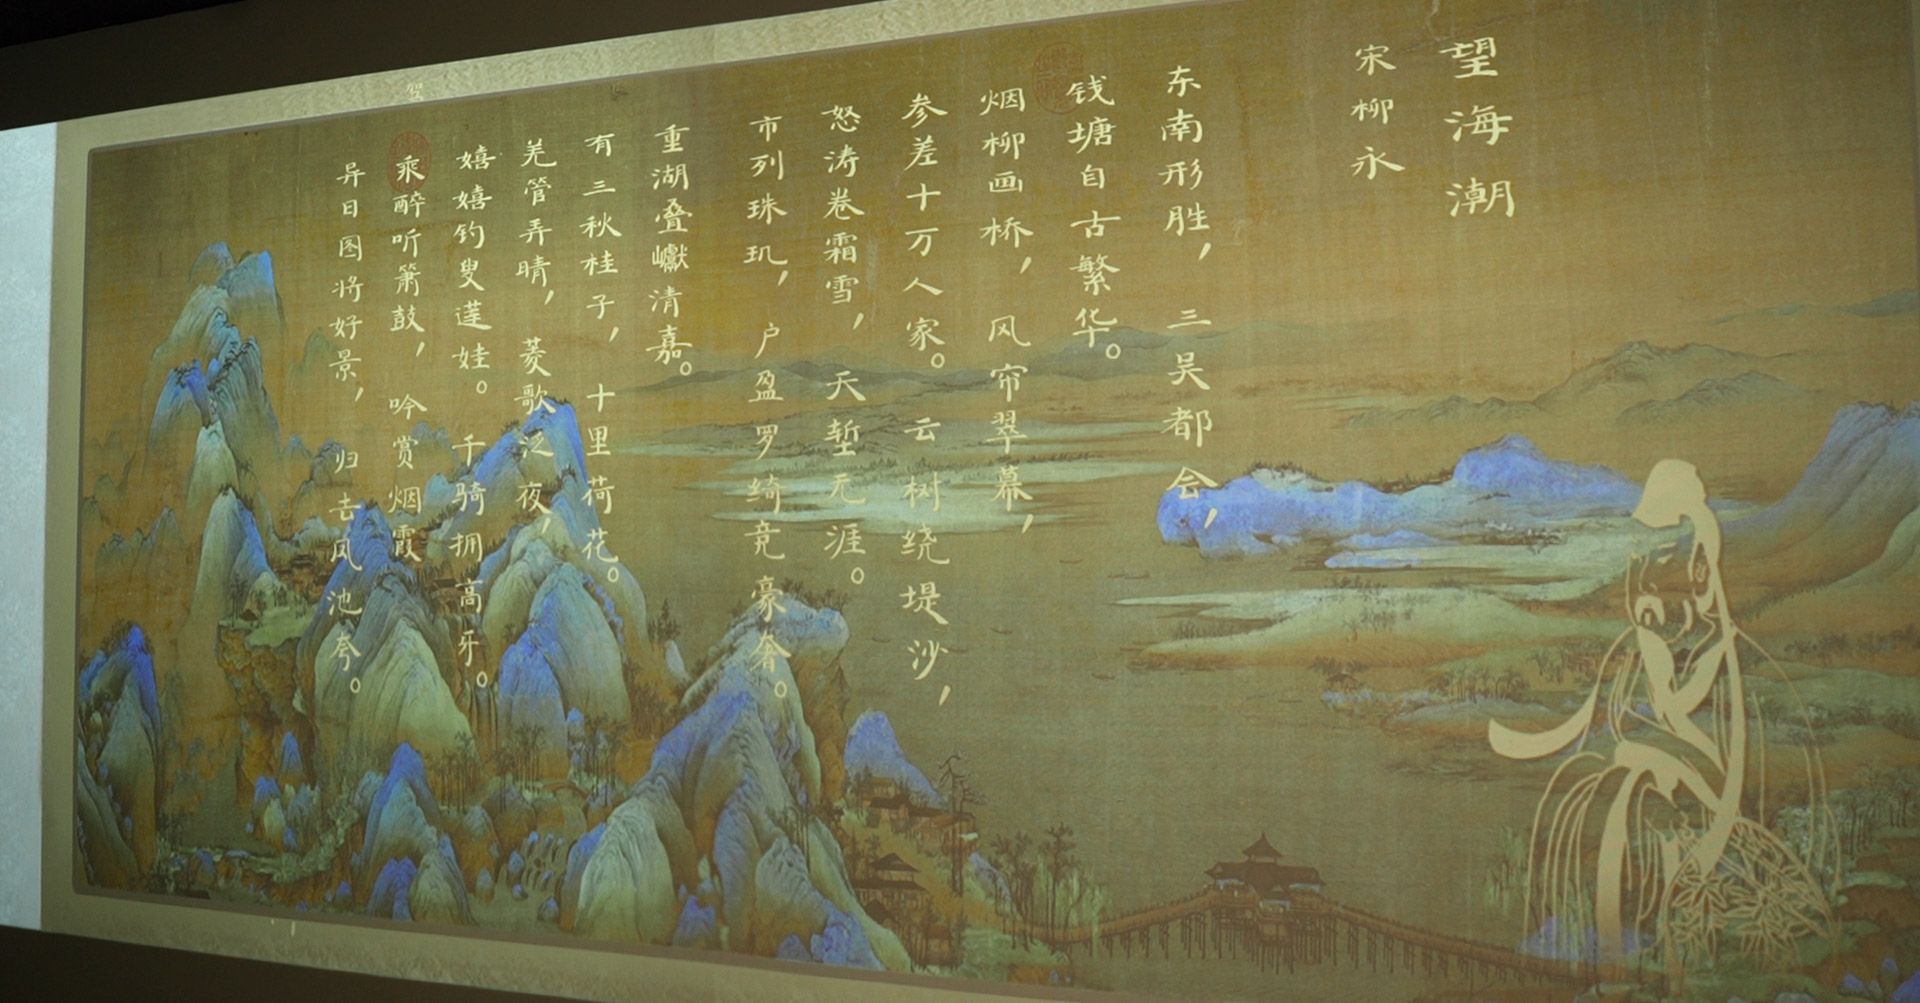 望海潮
宋柳永
东南形胜，三吴都会，
钱塘自古繁华。
烟柳画桥，风帘翠幕，
参差十万人家。云树绕堤沙，
怒涛卷霜雪，天堑无涯。
市列珠玑，户盈罗绮竞豪奢。
重湖叠巘清嘉。
有三秋桂子，十里荷花。
羌管弄晴，菱歌泛夜，
嬉嬉钓叟莲娃。千骑拥高牙。
乘醉听箫鼓，吟赏烟霞
异日图将好景，归去凤池夸。